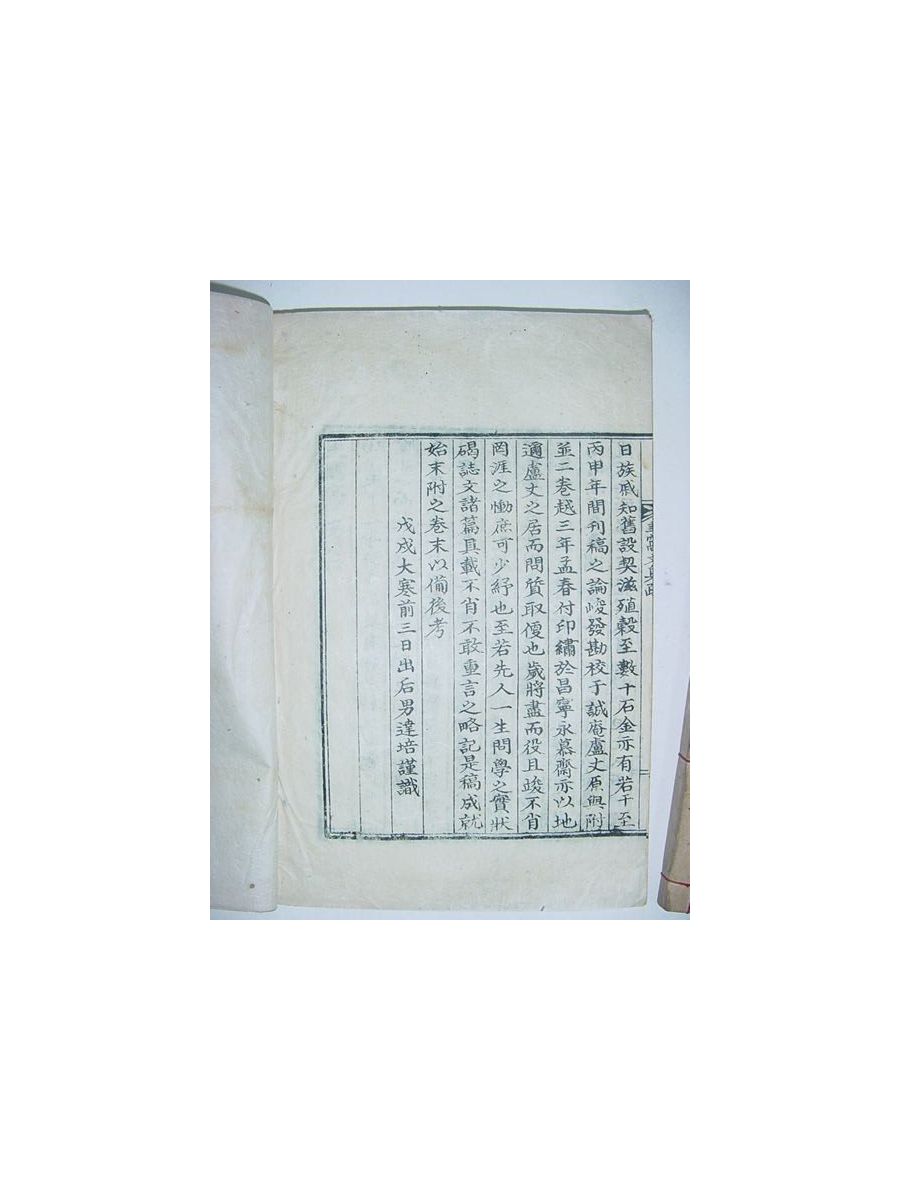 日族戚知舊設契滋殖穀至數十石金亦有若干至
丙申年間刊稿之論峻發勘校于誠庵盧丈原與附
並二卷越三年孟春付印繡於昌寧永慕齋亦以地
邇盧丈之居而問質取便也歲將盡而役且竣不肖
罔涯之慟庶可少紓也至若先人一生問學之實狀
碣誌文諸篇具載不肖不敢重言之略記是稿成就
始末附之卷末以備後考
戊戌大寒前三日出后男達培謹識